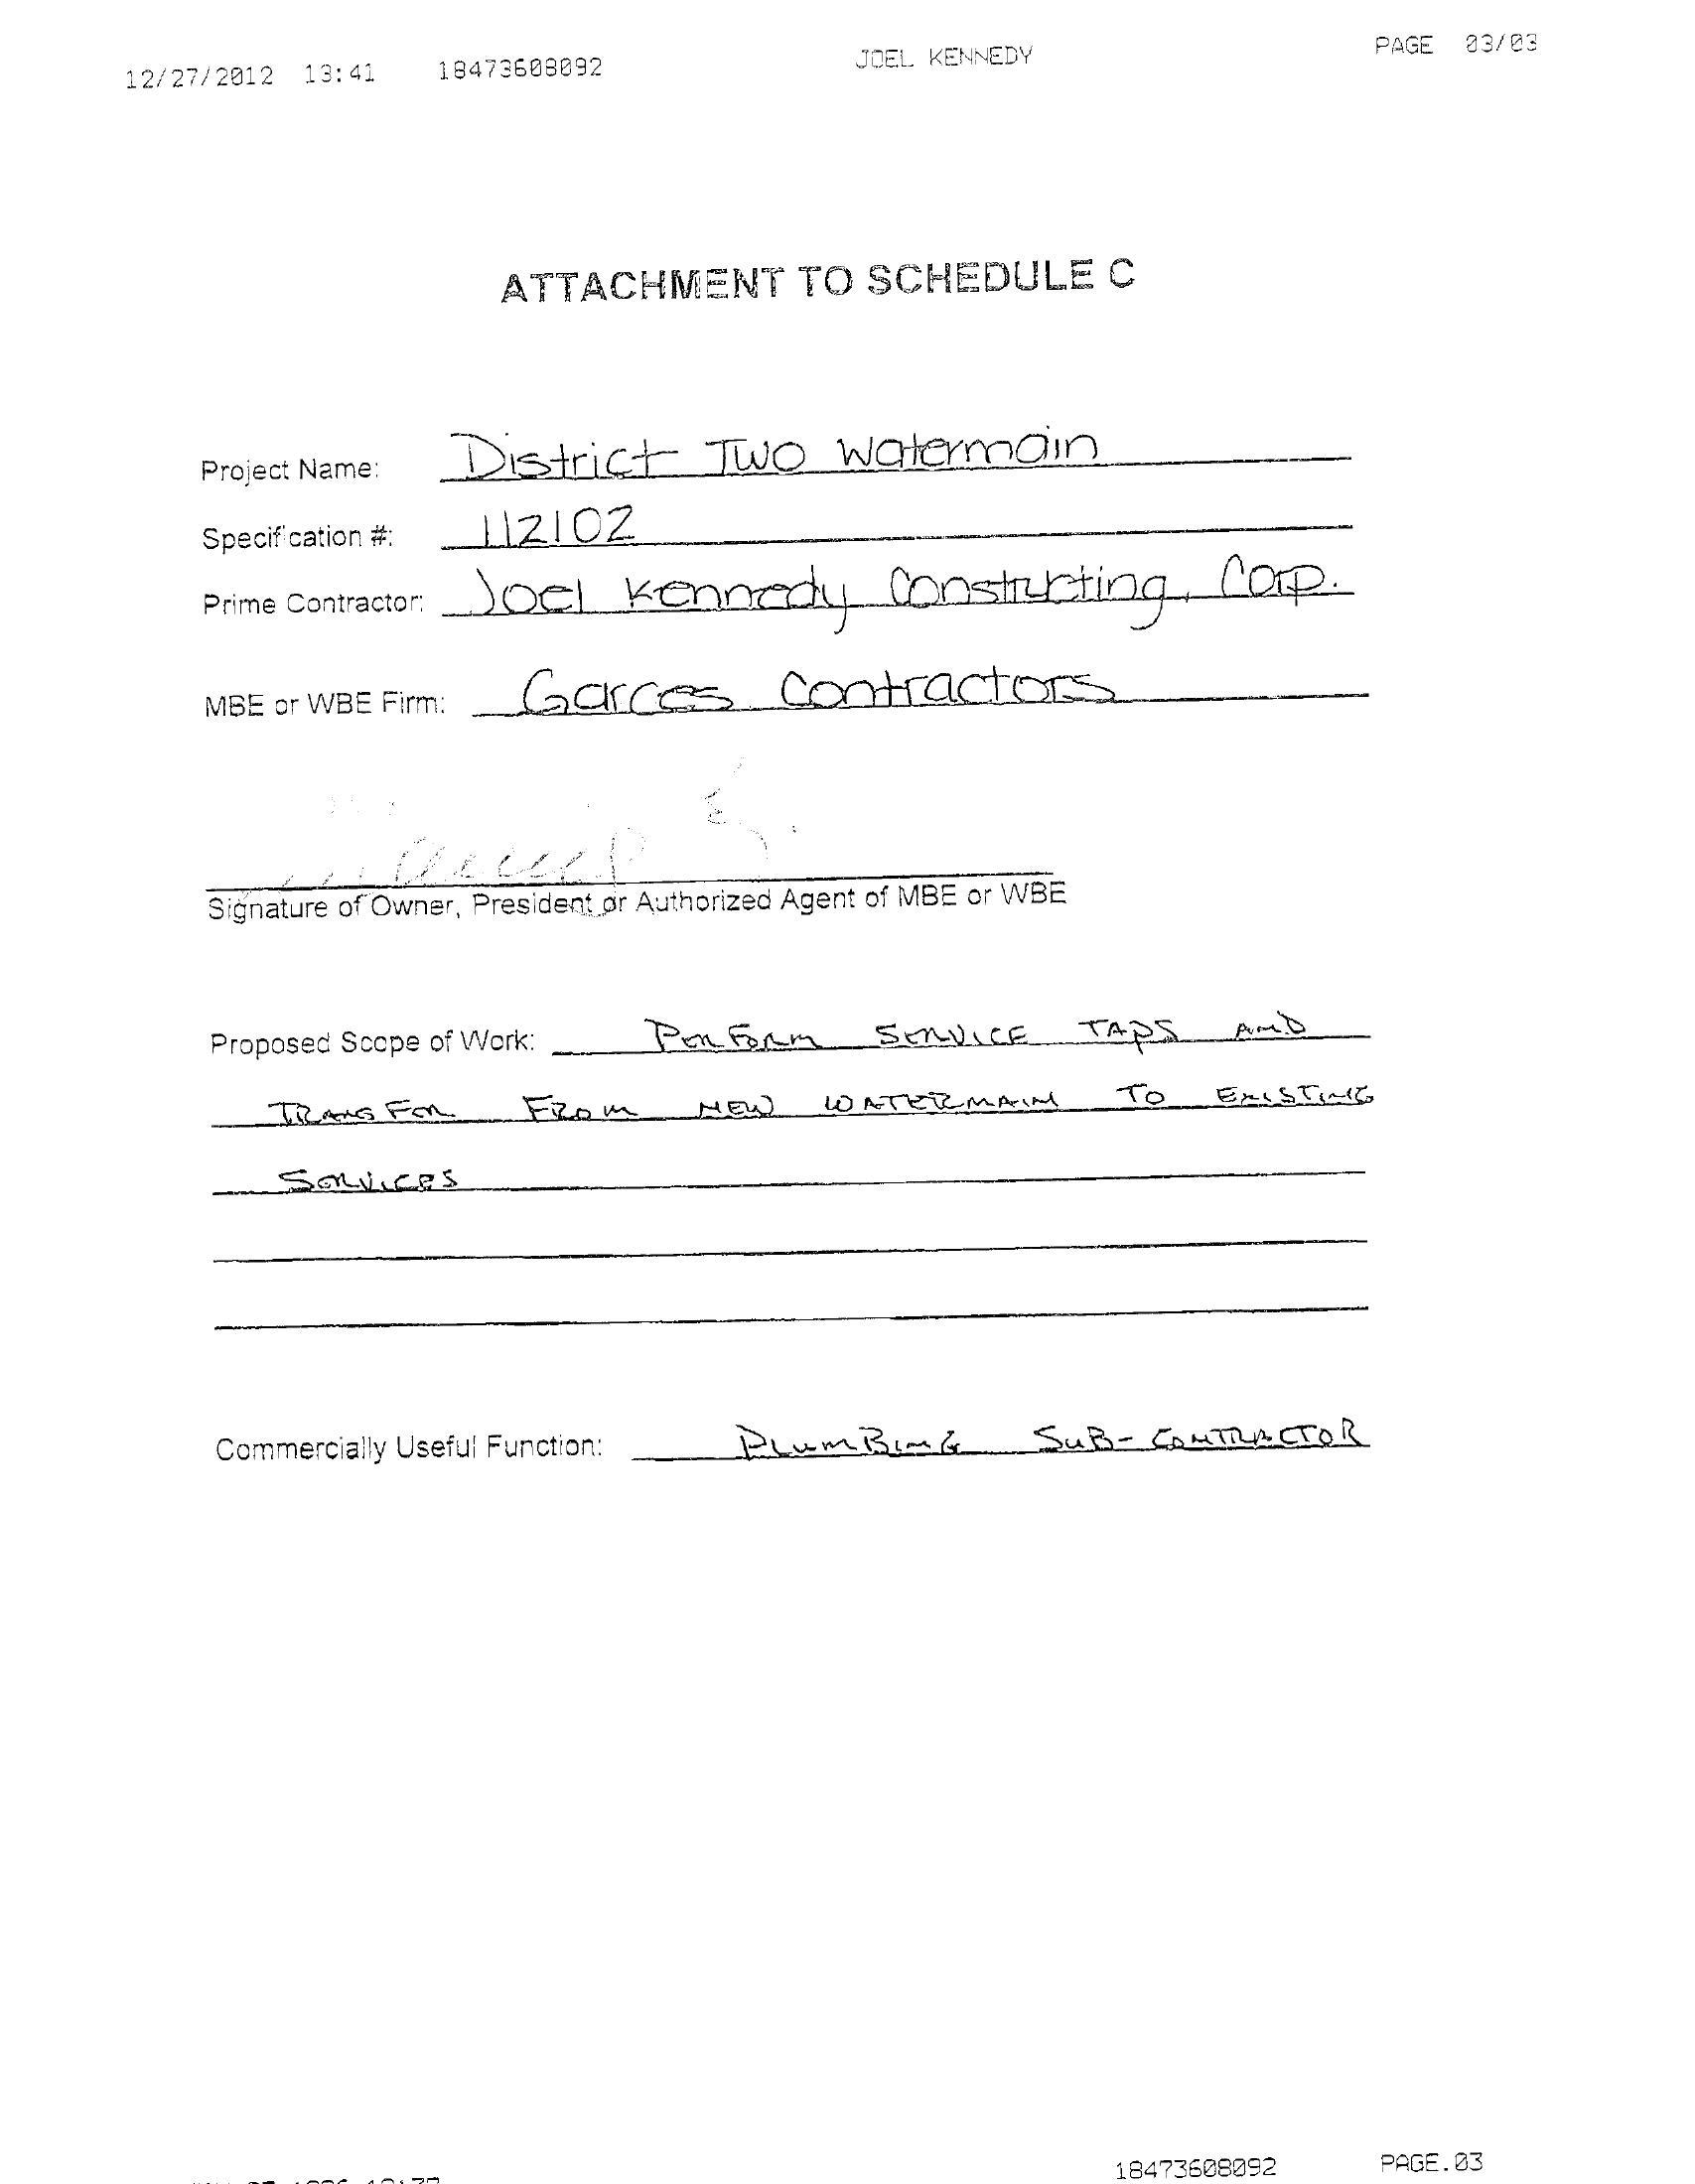 12/27/2012 13:41 18473608092 JOEL KENNEDY PAGE 03/03
ATTACHMENT TO SCHEDULE C
Project Name: District Two Watermain
Specification #: 112102
Prime Contractor: Joel Kennedy Constructing, Corp.
MBE or WBE Firm: Garces Contractors
Signature of Owner, President or Authorized Agent of MBE or WBE
Proposed Scope of Work: PERFORM SERVICE TAPS AND
TRANSFER FROM NEW WATERMAIN TO EXISTING
SERVICES
Commercially Useful Function: PLUMBING SUB-CONTRACTOR
18473608092 PAGE.03